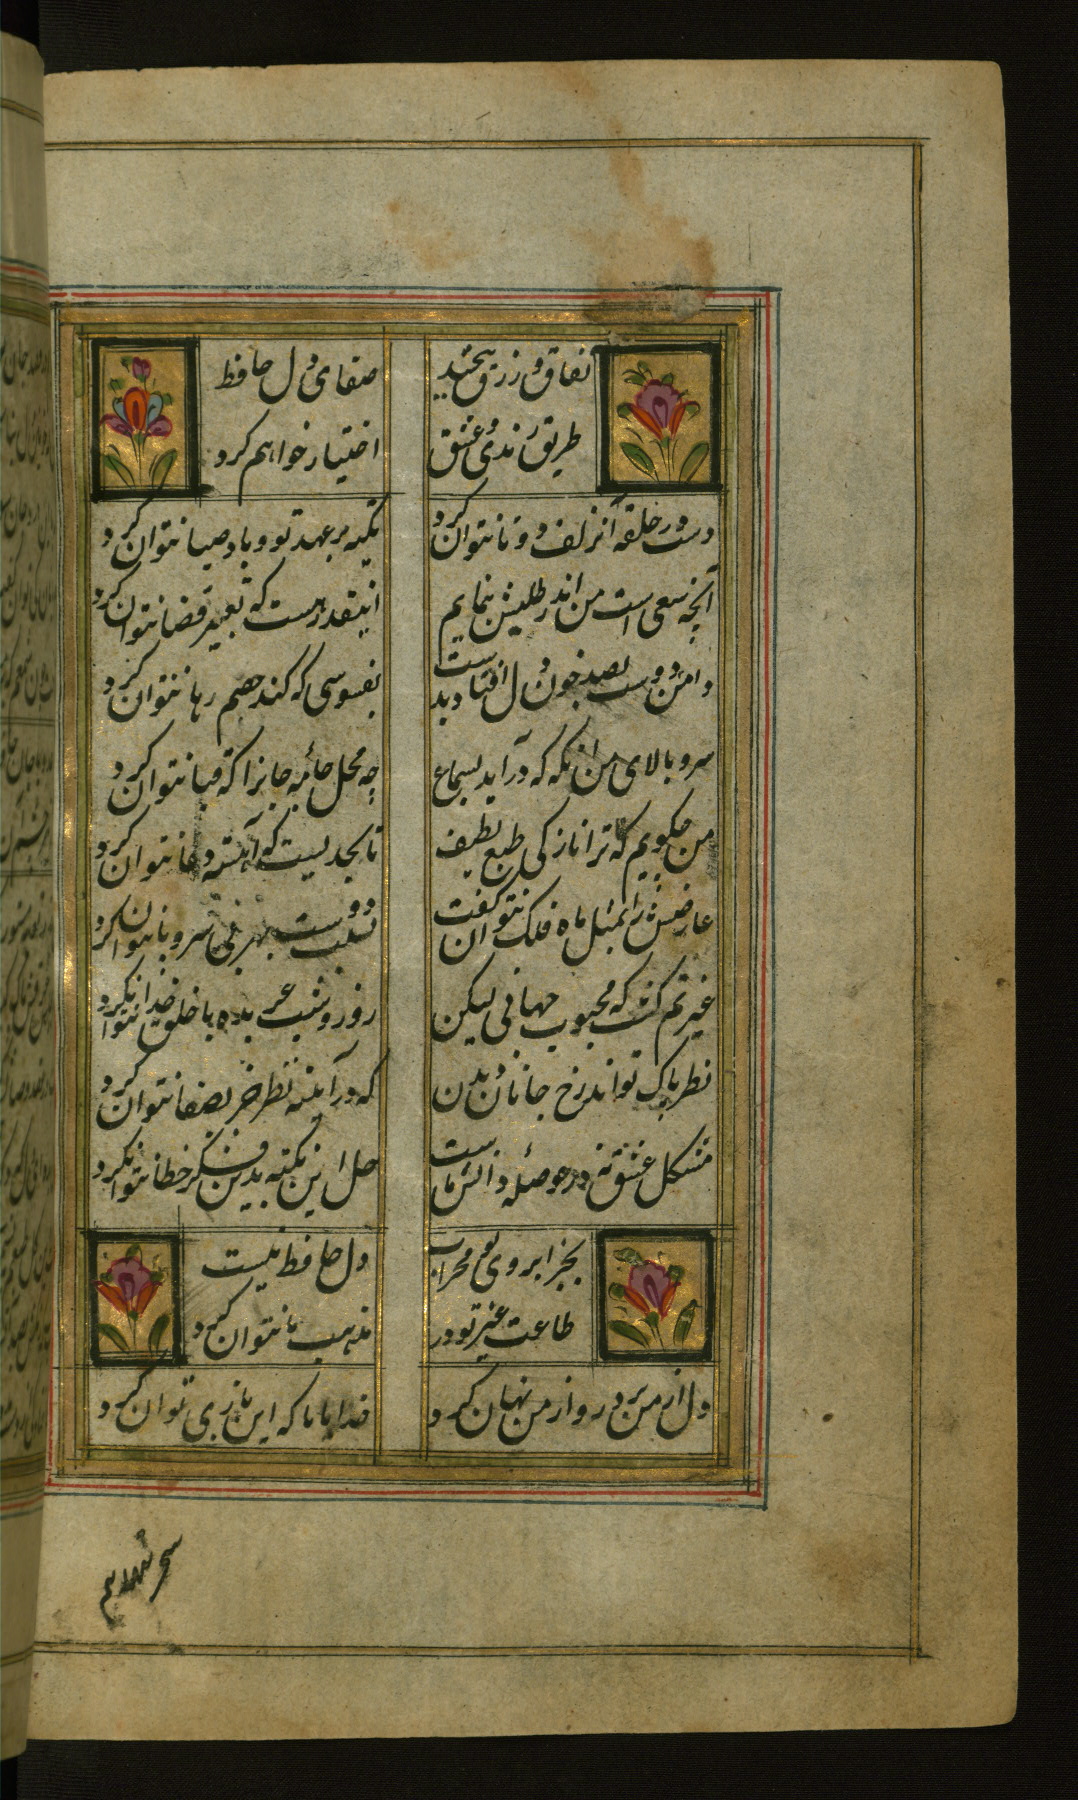 نفاق و زرق نبخشد صفای دل حافظ
طریق رندی و عشق اختیار خواهم کرد
دست در حلقه آنزلف دوتا نتوان کرد تکیه بر عهد تو و باد صبا نتوان کرد
آنچه سعی است من اندر طلبش بنمایم اینقدر هست که تغییر قضا نتوان کرد
دامن دوست بصد خون دل افتاد بدست بفسوسی که کند خصم رها نتوان کرد
سرو بالای من آنگه که درآید بسماع چه محل جامه جانرا که قبا نتوان کرد
من چگویم که ترا نازکی طبع لطیف تا بحدیست که آهسته دعا نتوان کرد
عارضش را بمثل ماه فلک نتوان گفت نسبت دوست بهر بی سر و پا نتوان کرد
غیرتم کشت که محبوب جهانی لیکن روز و شب عربده با خلق خدا نتوان کرد
نظر پاک تواند رخ جانان دیدن که در آینه نظر جز بصفا نتوان کرد
مشکل عشق نه در حوصله دانش ماست حل این نکته بدین فکر خطا نتوان کرد
بجز ابروی تو محراب دل حافظ نیست
طاعت غیر تو در مذهب ما نتوان کرد
دل از من برد و روی از من نهان کرد خدا را با که این بازی توان کرد